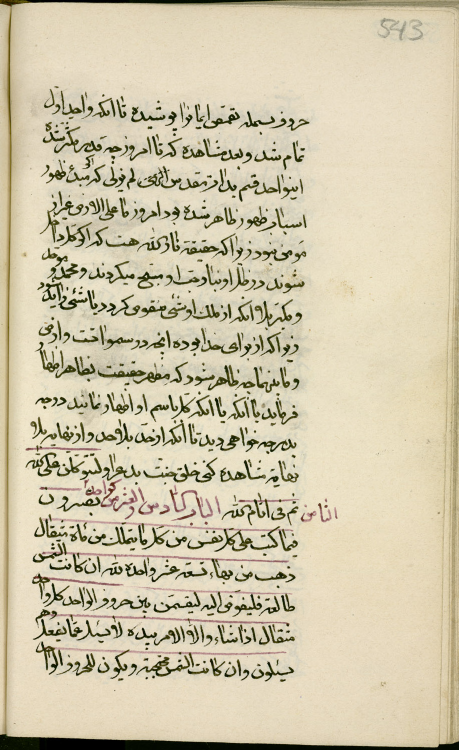 543
حروف بسمله تقمص ایمانرا پوشیده تا آنکه واحد اول
تمام شد و بعد مشاهده کن تا امروز چه قدر متکثر شده
این واحد قسم بذات مقدس الهی لم یزلی که مبدء ظهور
اسباب ظهور ظاهر شده بود امروز ما علی الارض
مومن بود زیرا که حقیقة ناز کلله هست که اگر کل داخل
شوند در ظل او نیاز حق او تسبیح میکردند و تحمید و توحید
و تکبیر بلا آنکه از ملک او شئ منقوص کردد یا شئ زاید گردد
زیرا که از برای خدا بوده آنچه در سموات و ارض
و مابینهما چه ظاهر شود که مظهر حقیقت بظاهر اظهار
فرماید یا آنکه یا آنکه کل باسم او اظهار نمایند درجه
بدرجه خواهی دید تا آنکه از حد بلا حد و از نهایة بلا
نهایة مشاهده کنی خلق جنت بدع را و لتتوکلن علی الله
ثم فی ایام الله تنصرون الباب السادس و العشر من الواحد الثامن
فیما کتب علی کل نفس من کل ما یتملک من مأة مثقال
ذهب من بهاء تسعة عشر و واحدة لله ان کانت الشمس
طالعة فلیفوض الیه لیقسمن بین حروف الواحد کل واحد
مثقال اذا شاء و الا الامر بیده لا یسئل عما یفعل و هم
یسئلون و ان کانت الشمس محتجبة و یکون للحروف الواحد